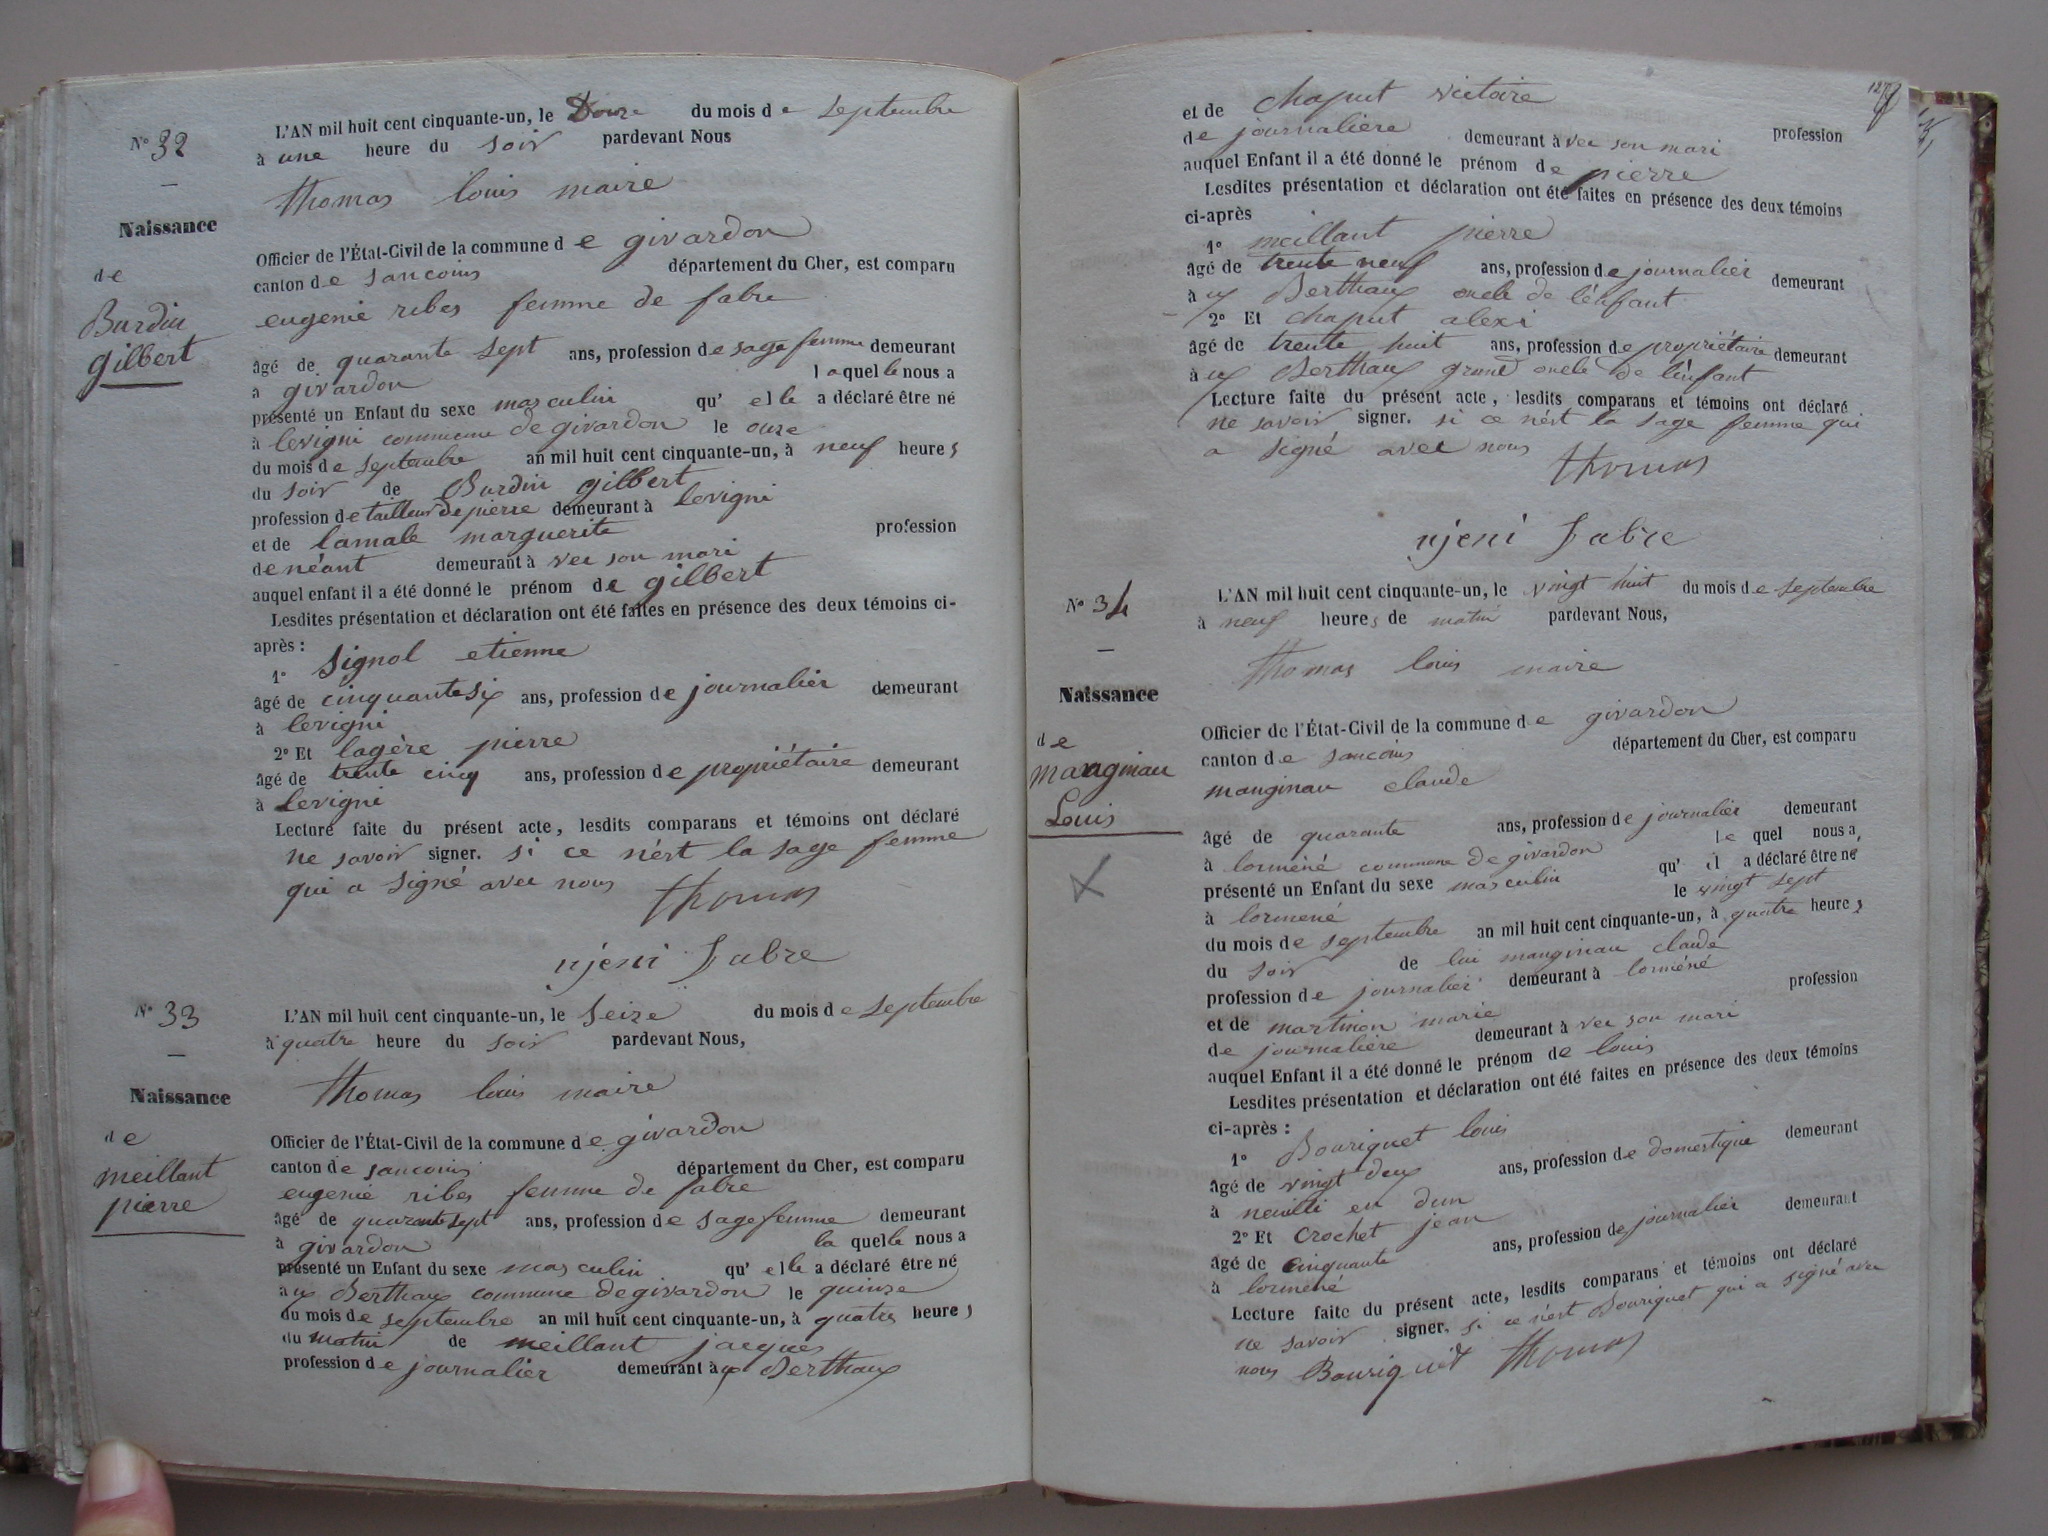 N° 32
Naissance
de
Burdin
gilbert
L'AN mil huit cent cinquante-un, le Douze du mois de septembre
à une heure du soir pardevant Nous
thomas louis maire
Officier de l'État-Civil de la commune de givardon
canton de sancoins département du Cher, est comparu
eugenie ribes femme de fabre
âgé de quarante sept ans, profession de sage femme demeurant
à givardon laquelle nous a
présenté un Enfant du sexe masculin qu' elle a déclaré être né
à levigni commune de givardon le onze
du mois de septembre an mil huit cent cinquante-un, à neuf heures
du soir de Burdin gilbert
profession de tailleur de pierre demeurant à levigni
et de lamale marguerite profession
de néant demeurant à vec son mari
auquel enfant il a été donné le prénom de gilbert
Lesdites présentation et déclaration ont été faites en présence des deux témoins ci-
après :
1° signol etienne
âgé de cinquante six ans, profession de journalier demeurant
à levigni
2° Et lagère pierre
âgé de trente cinq ans, profession de propriétaire demeurant
à levigni
Lecture faite du présent acte, lesdits comparans et témoins ont déclaré
ne savoir signer. si ce n'ést la sage femme
qui a signé avec nous thomas
ujeni fabre
N° 33
Naissance
de
meillant
pierre
L'AN mil huit cent cinquante-un, le seize du mois de septembre
à quatre heure du soir pardevant Nous,
thomas louis maire
Officier de l'État-Civil de la commune de givardon
canton de sancoins département du Cher, est comparu
eugenie ribes femme de fabre
âgé de quarante sept ans, profession de sage femme demeurant
à givardon la quelle nous a
présenté un Enfant du sexe masculin qu' elle a déclaré être né
aux Berthaux commune de givardon le quinze
du mois de septembre an mil huit cent cinquante-un, à quatre heures
du matin de meillant jacques
profession de journalier demeurant àux Berthaux
et de chaput victoire profession
de journalière demeurant à vec son mari
auquel Enfant il a été donné le prénom de pierre
Lesdites présentation et déclaration ont été faites en présence des deux témoins
ci-après
1° meillant pierre
âgé de trente neuf ans, profession de journalier demeurant
àux Berthaux oncle de l'énfant
2° Et chaput alexi
âgé de trente huit ans, profession de propriétaire demeurant
àux Berthaux grand oncle de l'énfant
Lecture faite du présent acte, lesdits comparans et témoins ont déclaré
ne savoir signer. si ce n'ést la sage femme qui
a signé avec nous thomas
ujeni fabre
N° 34
Naissance
de
manginau
Louis
L'AN mil huit cent cinquante-un, le vingt huit du mois de septembre
à neuf heures de matin pardevant Nous,
thomas louis maire
Officier de l'État-Civil de la commune de givardon
canton de sancoins département du Cher, est comparu
manginau claude
âgé de quarante ans, profession de journalier demeurant
à lorméné commune de givardon le quel nous a
présenté un Enfant du sexe masculin qu' il a déclaré être né
à lormené le vingt sept
du mois de septembre an mil huit cent cinquante-un, à quatre heures
du soir de lui manginau claude
profession de journalier demeurant à lorméné
et de martinon marie profession
de journalière demeurant à vec son mari
auquel Enfant il a été donné le prénom de louis
Lesdites présentation et déclaration ont été faites en présence des deux témoins
ci-après :
1° Bouriquet louis
âgé de vingt deux ans, profession de domestique demeurant
à neuilli en dun
2° Et crochet jean
âgé de cinquante ans, profession de journalier demeurant
à lormené
Lecture faite du présent acte, lesdits comparans et témoins ont déclaré
ne savoir signer. si ce n'ést Bouriquet qui a signé avec
nous Bouriquet thomas